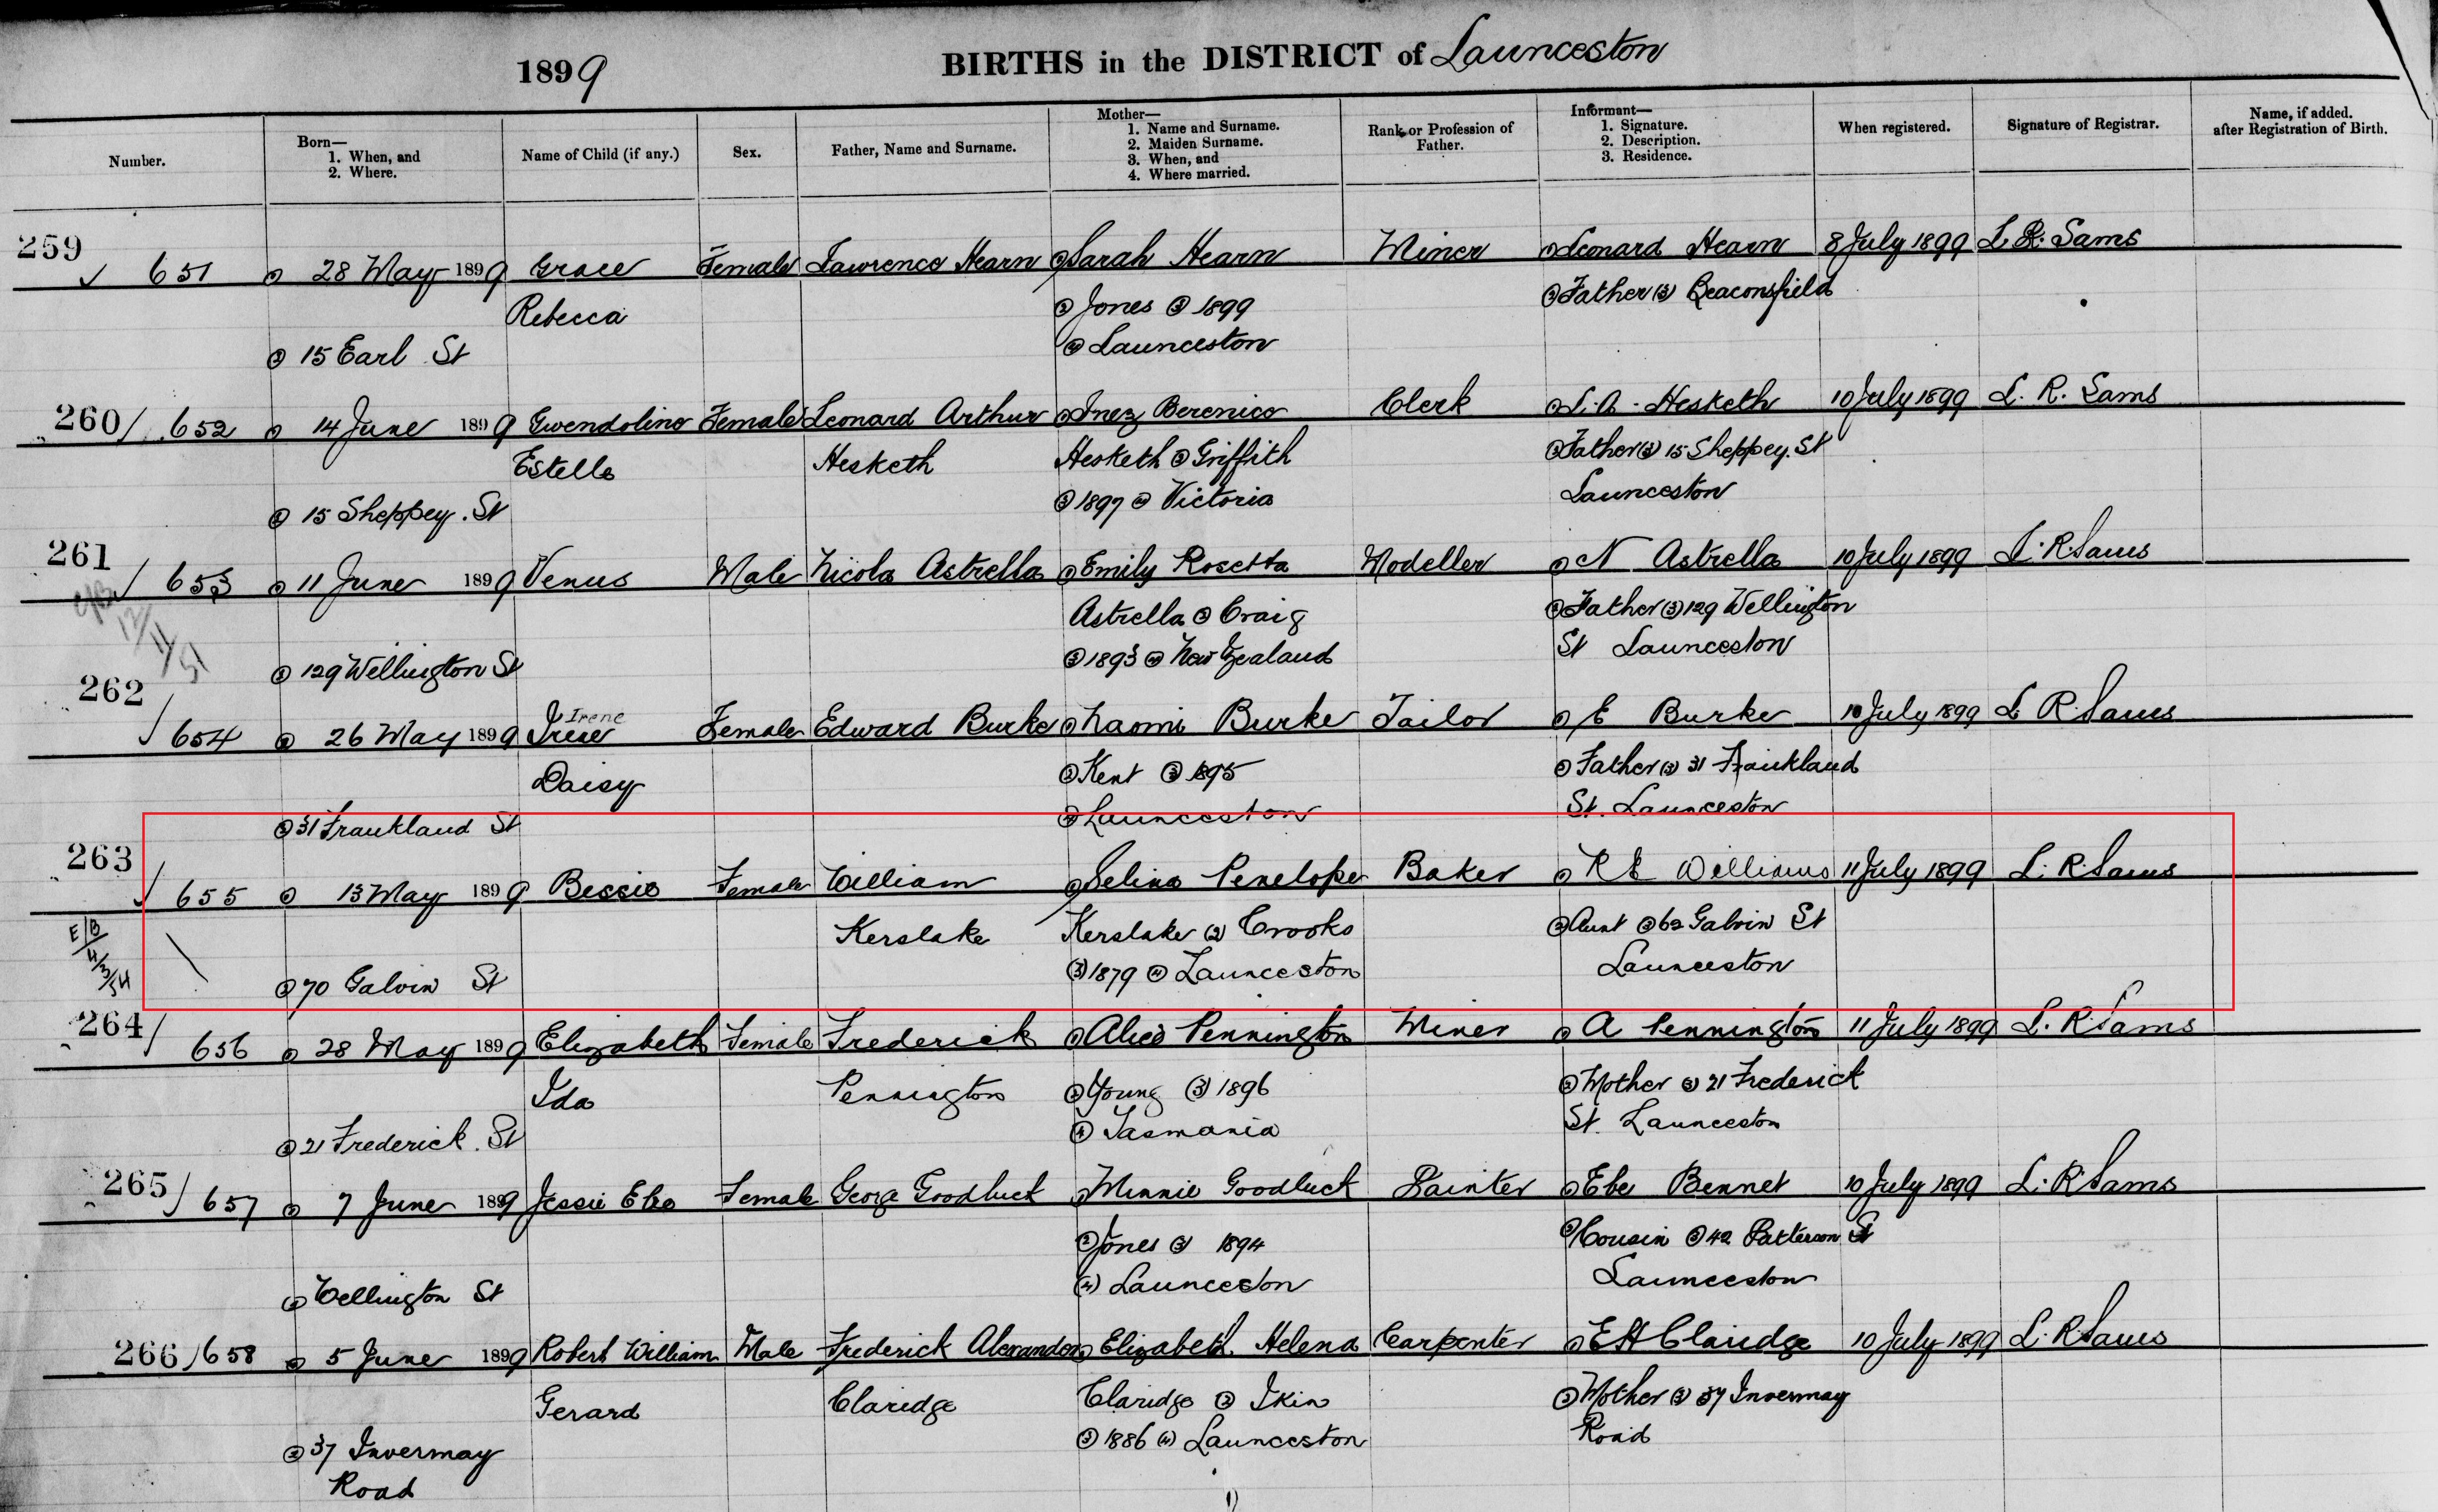 1899
BIRTHS in the DISTRICT of Launceston
Number.
Born—
1. When, and
2. Where.
Name of Child (if any.)
Sex.
Father, Name and Surname.
Mother—
1. Name and Surname.
2. Maiden Surname.
3. When, and
4. Where married.
Rank or Profession of
Father.
Informant—
1. Signature.
2. Description.
3. Residence.
When registered.
Signature of Registrar.
Name, if added.
after Registration of Birth.
259
651 (1) 28 May 1899 Grace Female Lawrence Hearn (1) Sarah Hearn Miner (1) Leonard Hearn 8 July 1899 L. R. Sams
Rebecca (2) Jones (3) 1899 (2) Father (3) Beaconsfield
(2) 15 Earl St (4) Launceston
260
652 (1) 14 June 1899 Gwendoline Female Leonard Arthur (1) Inez Berenice Clerk (1) L. A. Hesketh 10 July 1899 L. R. Sams
Estelle Hesketh Hesketh (2) Griffith (2) Father (3) 15 Sheppey. St
(2) 15 Sheppey. St (3) 1897 (4) Victoria Launceston
261
653 (1) 11 June 1899 Venus Male Nicola Astrella (1) Emily Rosetta Modeller (1) N Astrella 10 July 1899 L. R. Sams
12/11/51
Astrella (2) Craig (2) Father (3) 129 Wellington
(2) 129 Wellington St (3) 1893 (4) New Zealand St Launceston
262
Irene
654 (1) 26 May 1899 Irene Female Edward Burke (1) Naomi Burke Tailor (1) E Burke 10 July 1899 L R. Sams
Daisy (2) Kent (3) 1895 (2) Father (3) 31 Frankland
(2) 31 Frankland St (4) Launceston St. Launceston
263
655 (1) 13 May 1899 Bessie Female William (1) Selina Penelope Baker (1) R E Williams 11 July 1899 L. R. Sams
E/B
4/3/54
Kerslake Kerslake (2) Crooks (2) Aunt (3) 62 Galvin St
(2) 70 Galvin St (3) 1879 (4) Launceston Launceston
264
656 (1) 28 May 1899 Elizabeth Female Frederick (1) Alice Pennington Miner (1) A Pennington 11 July 1899 L. R. Sams
Ida Pennington (2) Young (3) 1896 (2) Mother (3) 21 Frederick
(2) 21 Frederick. St (4) Tasmania St. Launceston
265
657 (1) 7 June 1899 Jessie Ebe Female George Goodluck (1) Minnie Goodluck Painter (1) Ebe Bennet 10 July 1899 L. R. Sams
(2) Jones (3) 1894 (2) Cousin (3) 42 Patterson St
(2) Wellington St (4) Launceston Launceston
266
658 (1) 5 June 1899 Robert William Male Frederick Alexander (1) Elizabeth Helena Carpenter (1) E H Claridge 10 July 1899 L. R. Sams
Gerard Claridge Claridge (2) Ikin (2) Mother (3) 37 Invermay
(2) 37 Invermay (3) 1886 (4) Launceston Road
Road